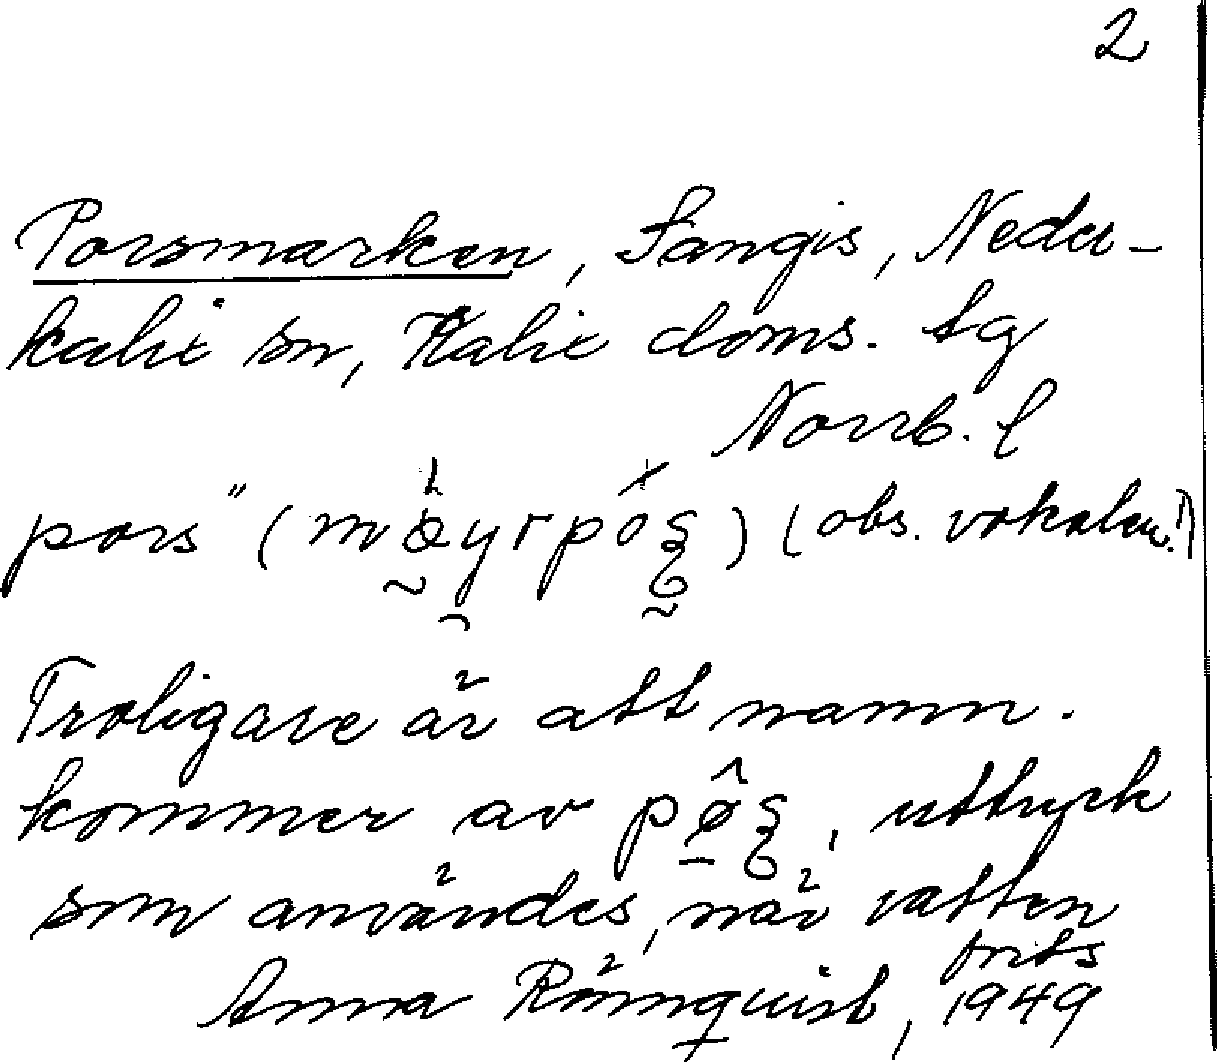 2
Porsmarken, Sangis, Neder-
kalix sn, Kalix doms. tg
Norrb. l
pors" ( ) (obs. vokalen!)
Troligare är att namn.
kommer av uttryck
som användes, när vatten
Anna Rönnquist, forts
1949